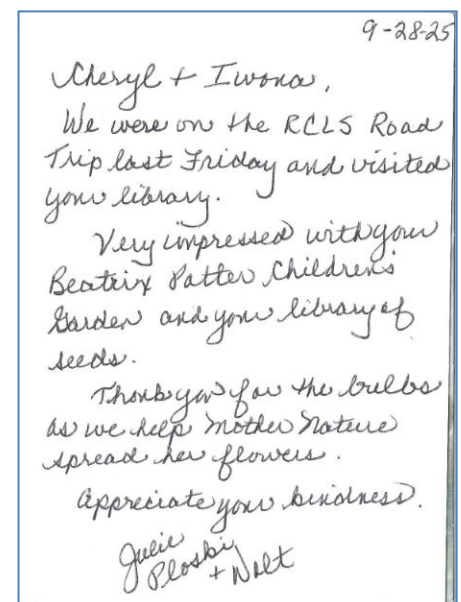 9-28-25
Cheryl + Iwona,
We were on the RCLS Road
Trip last Friday and visited
your library.
Very impressed with your
Beatrix Potter Children's
Garden and your library of
seeds.
Thank you for the bulbs
as we help Mother Nature
spread her flowers.
Appreciate your kindness.
Julie
Ploski
+ Walt